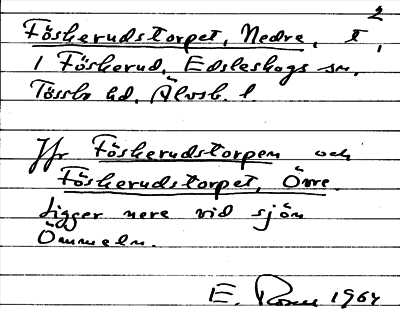 2
Föskerudstorpet, Nedre, t,
i Föskerud, Edsleskogs sn,
Tössbo hd, Älvsb. l.
Jfr Föskerudstorpen och
Föskerudstorpet, Övre.
Ligger nere vid sjön
Ömmeln.
E. 1964